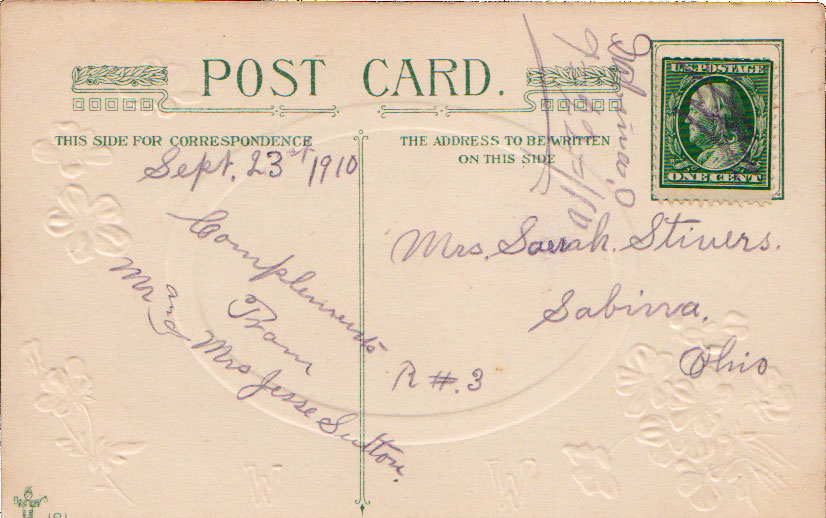 POST CARD.
THIS SIDE FOR CORRESPONDENCE
THE ADDRESS TO BE WRITTEN
ON THIS SIDE
U.S. POSTAGE
ONE CENT
Sabina, O
Sept. 23rd 1910
Complements
From
Mr and Mrs Jesse Sutton.
Mrs. Sarah. Stivers.
Sabina,
Ohio
R #. 3
W W
181